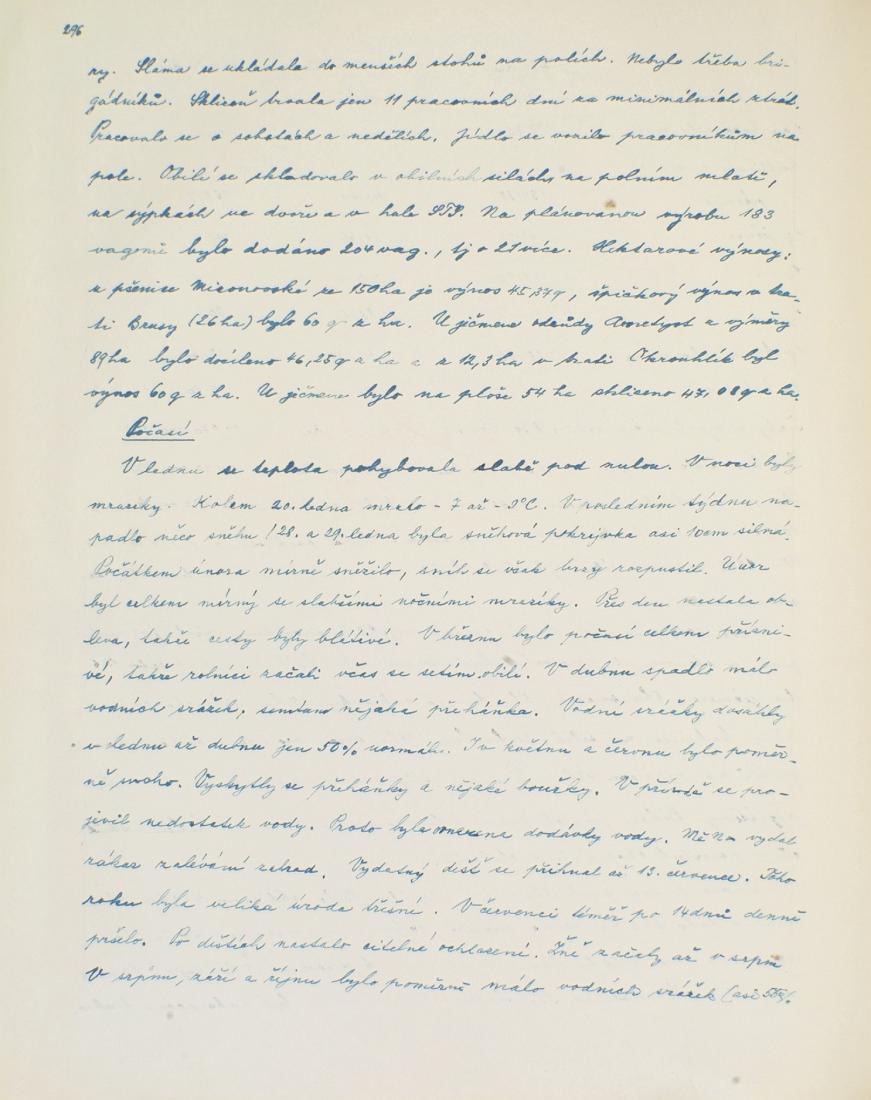 296
ny. Sláma se ukládala do menších stohů na polích. Nebylo třeba bri-
gádníků. Sklizeň trvala jen 11 pracovních dní za minimálních ztrát.
Pracovalo se o sobotách a nedělích. Jídlo se vozilo pracovníkům na
pole. Obilí se skladovalo v obilních silách, na polním mlatě,
na sýpkách ve dvoře a v hale STS. Na plánovanou výrobu 183
vagonů bylo dodáno 204 vag., tj o 21 více. Hektarové výnosy:
z pšenice Mironovské ze 150 ha je výnos 45,37 q, špičkový výnos v tra-
ti Brusy (26 ha) bylo 60 q z ha. U ječmene odrůdy z výměry
89 ha bylo docíleno 46,25 q z ha a z 12,3 ha v trati Okrouhlík byl
výnos 60 q z ha. U ječmene bylo na ploše 54 ha sklizeno 47,08 q z ha.
Počasí
V lednu se teplota pohybovala slabě pod nulou. V noci byly
mrazíky. Kolem 20. ledna mrzlo - 7 až - 9°C. V posledním týdnu na-
padlo něco sněhu / 28. a 29. ledna byla sněhová pokrývka asi 10cm silná.
Počátkem února mírně sněžilo, sníh se však brzy rozpustil. Únor
byl celkem mírný se slabšími nočními mrazíky. Přes den nastala ob-
leva, takže cesty byly blátivé. V březnu bylo počasí celkem přízni-
vé, takže rolníci začali včas se setím obilí. V dubnu spadlo málo
vodních srážek, semtam nějaká přeháňka. Vodní srážky dosáhly
v lednu až dubnu jen 50% normálu. I v květnu a červnu bylo poměr-
ně sucho. Vyskytly se přeháňky a nějaké bouřky. V přírodě se pro-
jevil nedostatek vody. Proto byla omezena dodávky vody. MěNV vydal
zákaz zalévání zahrad. Vydatný déšť se přihnal až 13. července. Toho
roku byla veliká úroda třešní. V červenci téměř po 14 dnů denně
pršelo. Po deštích nastalo citelné ochlazení. Žně začaly až v srpnu
V srpnu, září a říjnu bylo poměrně málo vodních srážek (asi